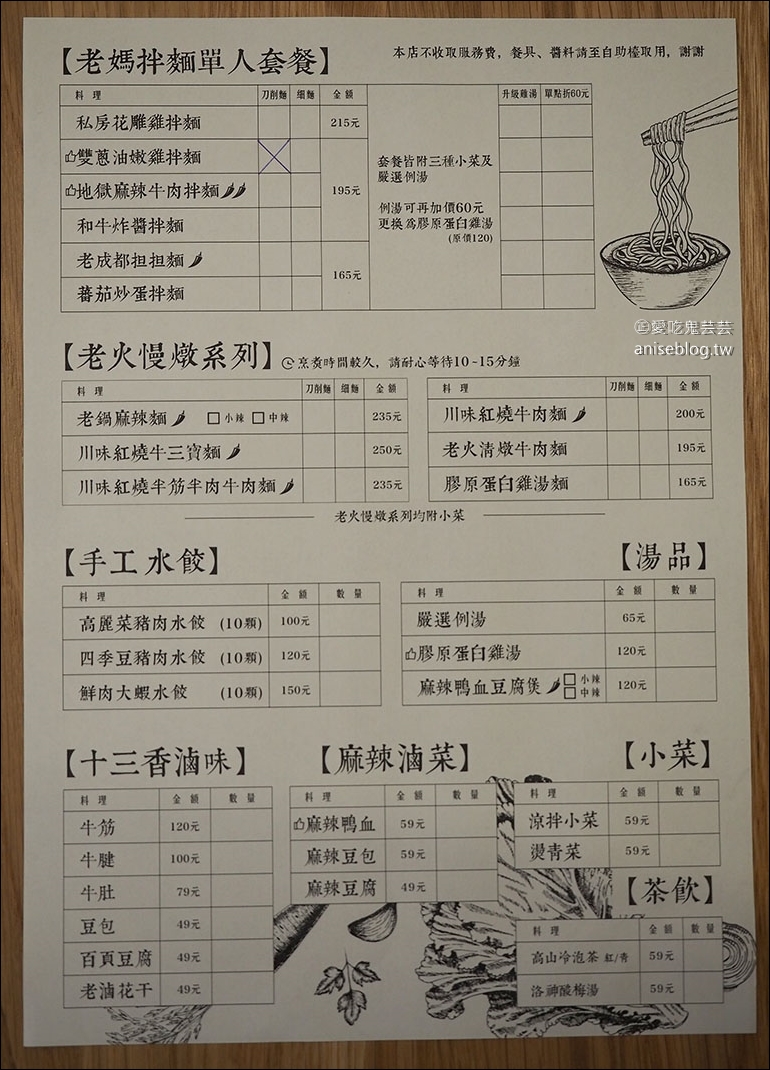 【老媽拌麵單人套餐】
本店不收取服務費，餐具、醬料請至自助檯取用，謝謝
料 理 刀削麵 細麵 金 額 升級雞湯 單點折60元
私房花雕雞拌麵 215元
雙蔥油嫩雞拌麵
地獄麻辣牛肉拌麵 195元
和牛炸醬拌麵
老成都担担麵
蕃茄炒蛋拌麵 165元
套餐皆附三種小菜及
嚴選例湯
例湯可再加價60元
更換為膠原蛋白雞湯
(原價120)
愛吃鬼芸芸
aniseblog.tw
【老火慢燉系列】 烹煮時間較久，請耐心等待10~15分鐘
料 理 刀削麵 細麵 金 額
老鍋麻辣麵 □小辣 □中辣 235元
川味紅燒牛三寶麵 250元
川味紅燒半筋半肉牛肉麵 235元
料 理 刀削麵 細麵 金 額
川味紅燒牛肉麵 200元
老火清燉牛肉麵 195元
膠原蛋白雞湯麵 165元
老火慢燉系列均附小菜
【手工水餃】
料 理 金 額 數 量
高麗菜豬肉水餃 (10顆) 100元
四季豆豬肉水餃 (10顆) 120元
鮮肉大蝦水餃 (10顆) 150元
【湯品】
料 理 金 額 數 量
嚴選例湯 65元
膠原蛋白雞湯 120元
麻辣鴨血豆腐煲 □小辣 □中辣 120元
【十三香滷味】
料 理 金 額 數 量
牛筋 120元
牛腱 100元
牛肚 79元
豆包 49元
百頁豆腐 49元
老滷花干 49元
【麻辣滷菜】
料 理 金 額 數 量
麻辣鴨血 59元
麻辣豆包 59元
麻辣豆腐 49元
【小菜】
料 理 金 額 數 量
涼拌小菜 59元
燙青菜 59元
【茶飲】
料 理 金 額 數 量
高山冷泡茶 紅/青 59元
洛神酸梅湯 59元